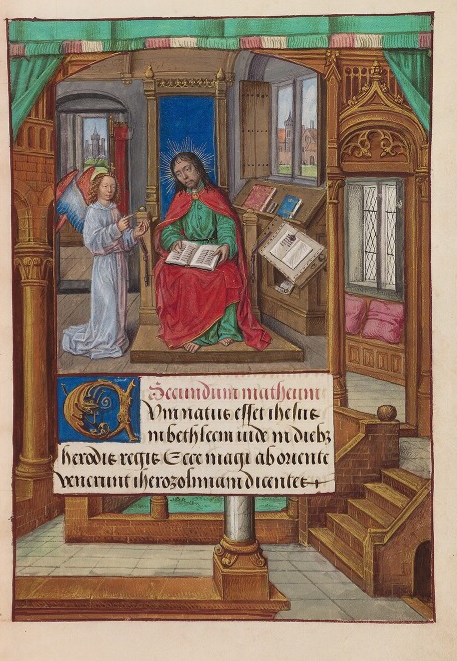 Secundum matheum
CVm natus esset ihesus
in bethleem iude in diebꝫ
herodis regis Ecce magi ab oriente
venerunt iherozolimam dicentes